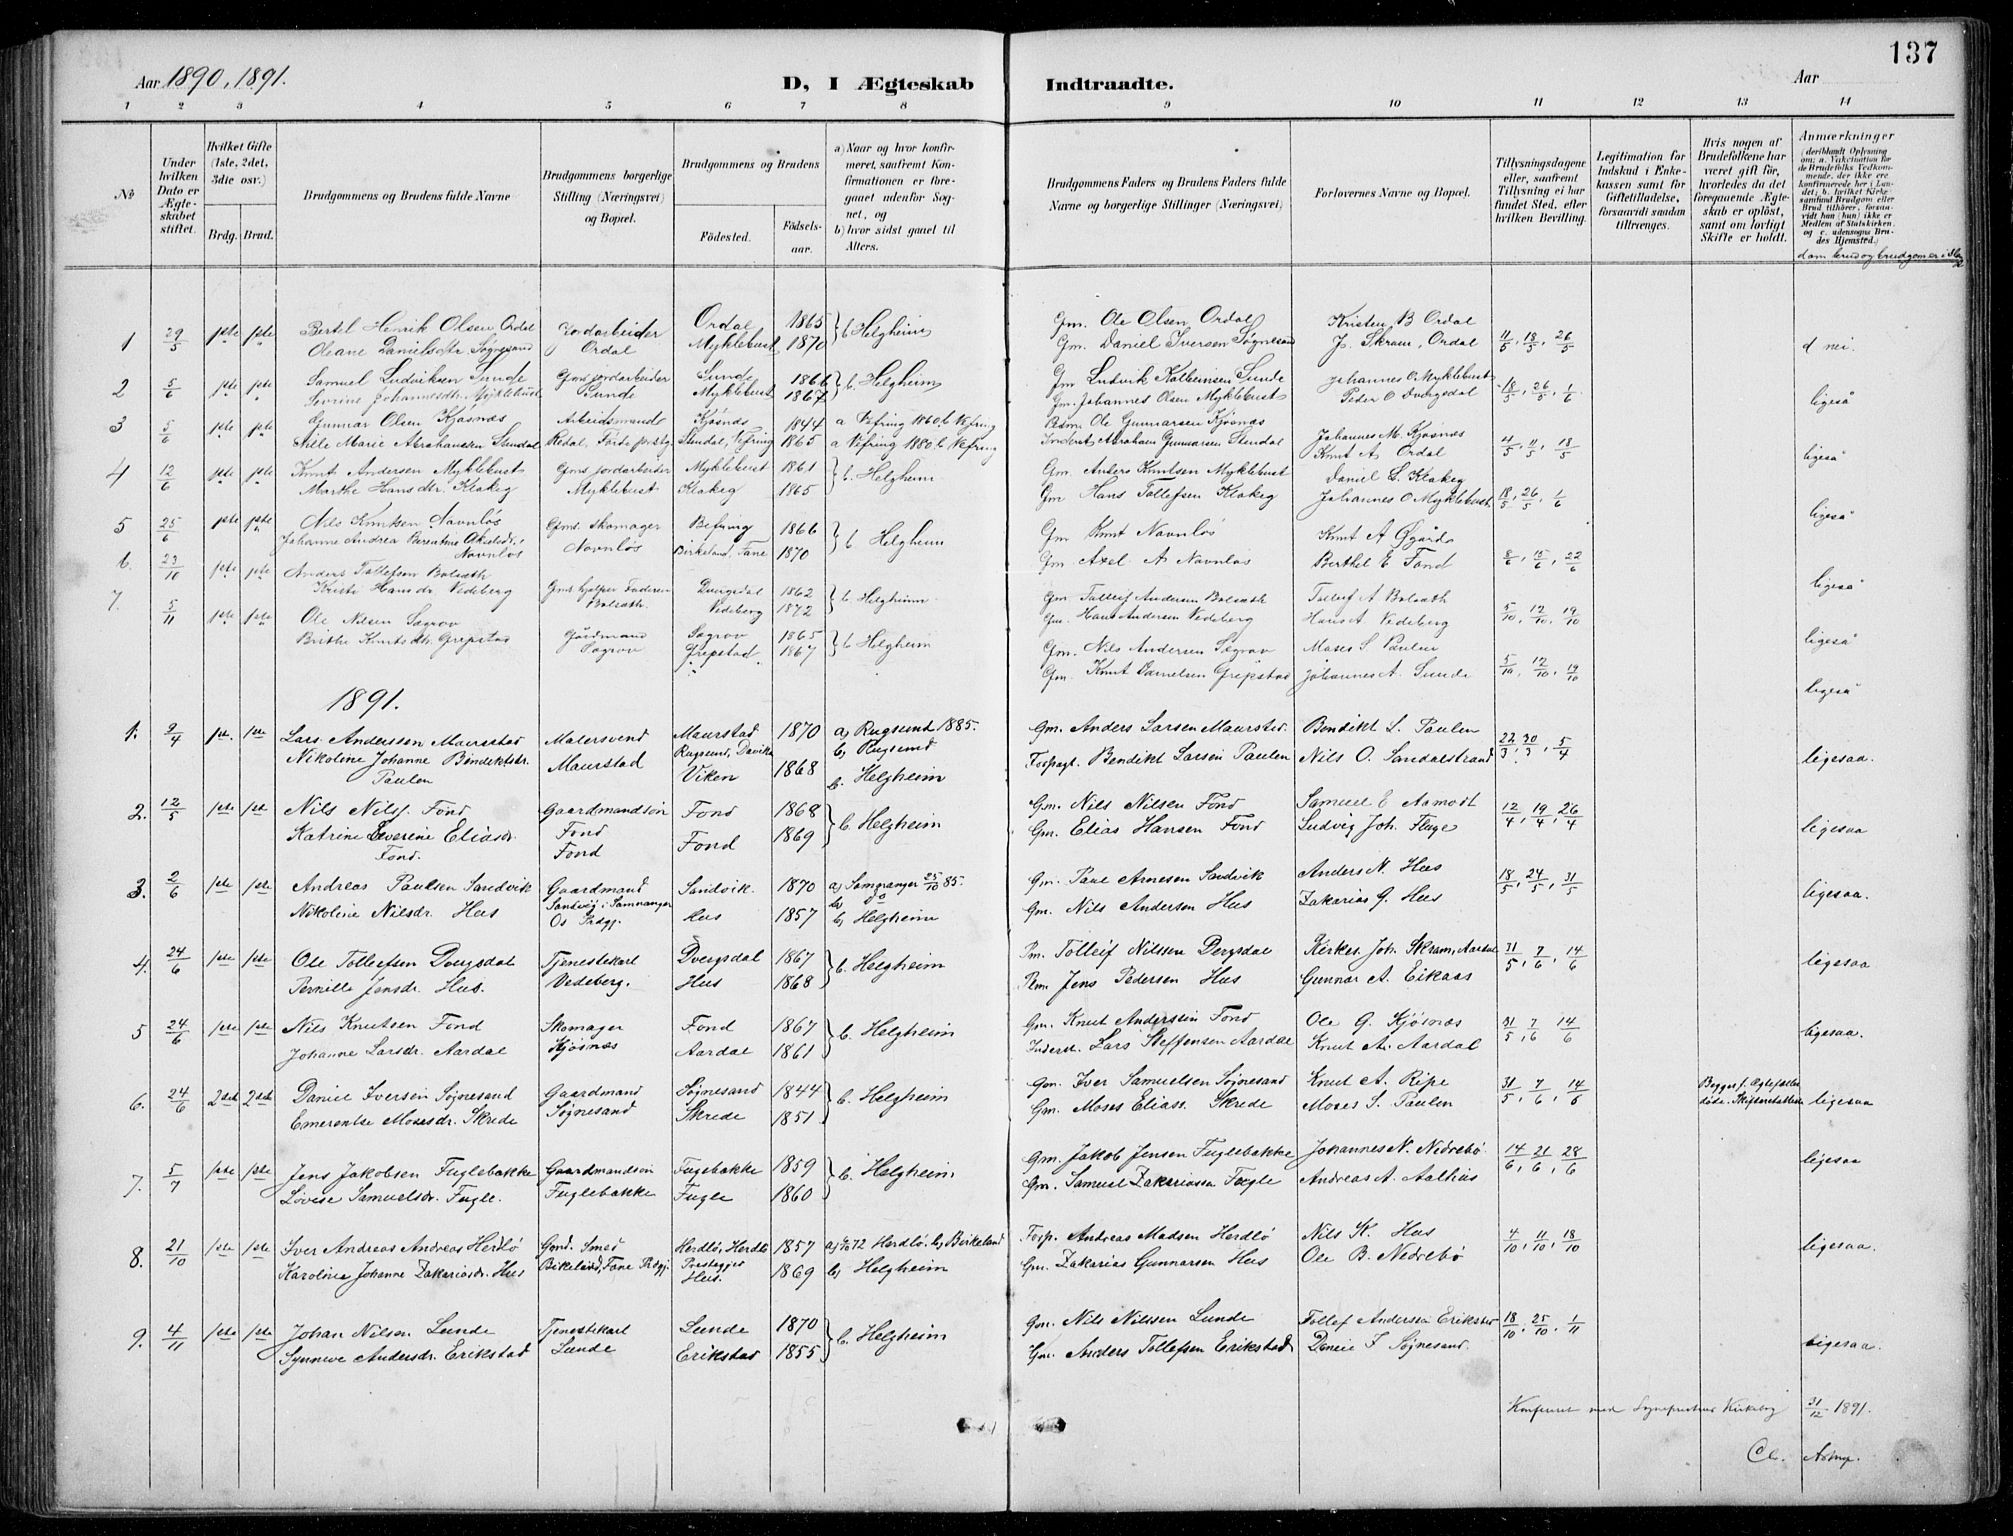 137
Aar 1890, 1891.
D, I Ægteskab Indtraadte.
Aar
1 2 3 4 5 6 7 8 9 10 11 12 13 14
No
Under hvilken Dato er Ægteskabet stiftet.
Hvilket Gifte (1ste, 2det, 3die osv.)
Brdg. Brud.
Brudgommens og Brudens fulde Navne
Brudgommens borgerlige Stilling (Næringsvei) og Bopæl.
Brudgommens og Brudens
Födested. Födselsaar.
a) Naar og hvor konfirmeret, saafremt Konfirmationen er foregaaet udenfor Sognet, og
b) hvor sidst gaaet til Alters.
Brudgommens Faders og Brudens Faders fulde Navne og borgerlige Stillinger (Næringsvei)
Forlovernes Navne og Bopæl.
Tillysningsdagene eller, saafremt Tillysning ei har fundet Sted, efter hvilken Bevilling.
Legitimation for Indskud i Enkekassen samt for Giftetilladelse, forsaavidt saadan tiltrænges.
Hvis nogen af Brudefolkene har været gift för, hvorledes da det foregaaende Ægteskab er oplöst, samt om lovligt Skifte er holdt.
Anmærkninger (deriblandt Oplysning om: a. Vakcination for de Brudefolks Vedkommende, der ikke ere konfirmerede her i Landet; b. hvilket Kirkesamfund Brudgom eller Brud tilhörer, forsaavidt han (hun) ikke er Medlem af Statskirken, og c. udensogns Brudes Hjemsted.)
d om brud og brudgom er i
1 29/5 1ste 1ste Bertel Henrik Olsen Ordal Jordarbeider Ordal 1865 b. Helgheim Gm. Ole Olsen Ordal Kristen B Ordal 11/5, 18/5, 26/5 d nei.
Oleane Danielsdtr Søgnesand Ordal Myklebust 1870 Gm. Daniel Iversen Søgnesand J. Skram, Ordal
2 5/6 1ste 1ste Samuel Ludviksen Sunde Gms jordarbeider Sunde 1866 b. Helgheim Gm Ludvik Kolbeinsen Sunde Johannes O Myklebust 18/5, 26/5, 1/6 ligeså
Sevrine Johannesdtr. Myklebust Sunde Myklebust 1867 Gm. Johannes Olsen Myklebust Peder O Dvergsdal
3 5/6 1ste 1ste Gunnar Olsen Kjøsnæs Arbeidsmand Kjøsnæs 1844 a Vefring 1860 b Vefring Ole Gunnarsen Kjøsnæs Johannes M. Kjøsnæs 4/5, 11/5, 18/5 ligeså
Marie Abrahamsen Stendal Førde prstgj Stendal, Vefring 1865 a Vefring 1880 b Vefring Inderst Abraham Gunnarsen Stendal Knut A. Ordal
4 12/6 1ste 1ste Knut Andersen Myklebust Gms jordarbeider Myklebust 1861 b. Helgheim Gm. Anders Knutsen Myklebust Daniel L. Klakeg 18/5, 26/5, 1/6 ligeså
Marthe Hansdtr. Klakeg Myklebust Klakeg 1865 Gm Hans Tollefsen Klakeg Johannes O Myklebust
5 25/6 1ste 1ste Nils Knutsen Navnløs Gms. Skomager Vefring 1866 b. Helgheim Gm Knut Navnløs Knut A Øgård 8/6, 15/6, 22/6 ligeså
Johanne Andrea Berentine Akselsdtr. Navnløs Navnløs Birkeland, Fane 1870 Gm Axel A Navnløs Berthel E Fond
6. 23/10 1ste 1ste Anders Tollefsen Bolsæth Gms hjelper Faderen Dvergsdal 1862 b Helgheim Gm Tolleif Andersen Bolsæth Tolleif A Bolsæth 5/10, 12/10, 19/10 ligeså
Kristi Hansdr. Vedeberg Bolsæth. Vedeberg 1872 Gm. Hans Andersen Vedeberg Hans A Vedeberg
7. 5/11 1ste 1ste Ole Nilsen Søgrov Gårdmand Søgrov 1865 b Helgheim Gm. Nils Andersen Søgrov Moses S Paulen 5/10, 12/10, 19/10 ligeså
Brithe Knutsdtr. Grepstad Søgrov Grepstad 1867 Gm. Knut Danielsen Grepstad Johannes A. Sunde
1891.
1. 9/4 1ste 1ste Lars Anderssen Maurstad Malersvend Maurstad 1870 a) Rugsund 1885. Gm. Anders Larsen Maurstad. Bendikt L. Paulen 22/3, 30/3, 5/4 ligesaa.
Nikoline Johanne Bendiktsdr. Paulen Maurstad Rugsund, Davik b) Rugsund Forpagt. Bendikt Larsen Paulen Nils O. Sandalstrand
Viken 1868 b. Helgheim
2. 12/5 1ste 1ste Nils Nilss. Fond Gaardmandsøn Fond 1868 b. Helgheim Gm. Nils Nilsen Fond Samuel E Aamodt 12/4, 19/4, 26/4 ligesaa
Katrine Severine Eliasdr. Fond. Fond Fond Fond 1869 Gm. Elias Hansen Fond Ludvig Joh. Flage
3. 2/6 1ste 1ste Andreas Paulsen Sandvik Gaardmand Sandvik. 1870 a) Samnanger 25/10 85. Gm. Paul Arnesen Sandvik Anders N. Hus 18/5, 24/5, 31/5 ligesaa.
Nikoline Nilsdr. Hus Sandvig i Samnanger Os Prdgj. Hus 1857 b) do b) Helgheim Gm. Nils Andersen Hus Zakarias G. Hus
4. 24/6 1ste 1ste Ole Tollefsen Dvergsdal Tjenestekarl Dvergsdal 1867 b. Helgheim Pm. Tolleif Nilssen Dergsdal Kirkes. Joh. Skram, Aardal 31/5, 7/6, 14/6 ligesaa
Pernille Jensdr. Hus. Vedeberg. Hus 1868 Pm. Jens Pedersen Hus Gunnar A. Eikaas
5 24/6 1ste 1ste Nils Knutsen Fond Skomager Fond 1867 b. Helgheim Gm. Knut Andersen Fond Ole G. Kjøsnæs 31/5, 7/6, 14/6 ligesaa.
Johanne Larsdr. Aardal Kjøsnæs Aardal 1861 Inderst. Lars Steffensen Aardal Knut A. Aardal
6. 24/6 2det 2det Daniel Iversen Søgnesand Gaardmand Søgnesand 1844 b. Helgheim Gm. Iver Samuelsen Søgnesand Knut A. Ripe 31/5, 7/6, 14/6 Begges f. Egtefæller døde. Skifteretattest ligesaa
Emerentse Mosesdr. Skrede Søgnesand Skrede 1851 Gm. Moses Eliass. Skrede Moses S. Paulen
7. 5/7 1ste 1ste Jens Jakobsen Fuglebakke Gaardmandsøn Fuglebakke 1859 b. Helgheim Gm. Jakob Jensen Fuglebakke Johannes N. Nedrebø. 14/6, 21/6, 28/6 ligesaa
Lovise Samuelsdr. Fugle. Fuglebakke Fugle 1860 Gm. Samuel Zakariassen Fugle Andreas A. Aalhus
8. 21/10 1ste 1ste Iver Andreas Andreas Herdlø Gmd. Smed Herdlø, Herdlø Prestegjeld 1857 a) 72 Herdlø. b) Birkeland Forp. Andreas Madsen Herdlø Nils K. Hus 4/10, 11/10, 18/10 ligesaa.
Karoline Johanne Zakariasdr. Hus Birkeland, Fane Prdgj. Hus. 1869 b) Helgheim Gm. Zakarias Gunnarsen Hus Ole B. Nedrebø
9. 4/11 1ste 1ste Johan Nilsen Lunde Tjenestekarl Lunde 1870 b. Helgheim Gm. Nils Nilssen Lunde Tollef Andersen Erikstad 18/10, 25/10, 1/11 ligesaa.
Synneve Andersdr. Erikstad Lunde Erikstad 1855 Gm. Anders Tollefsen Erikstad Daniel I Søgnesand.
Konfereret med Sogneprestens Kirkebog 31/12 1891.